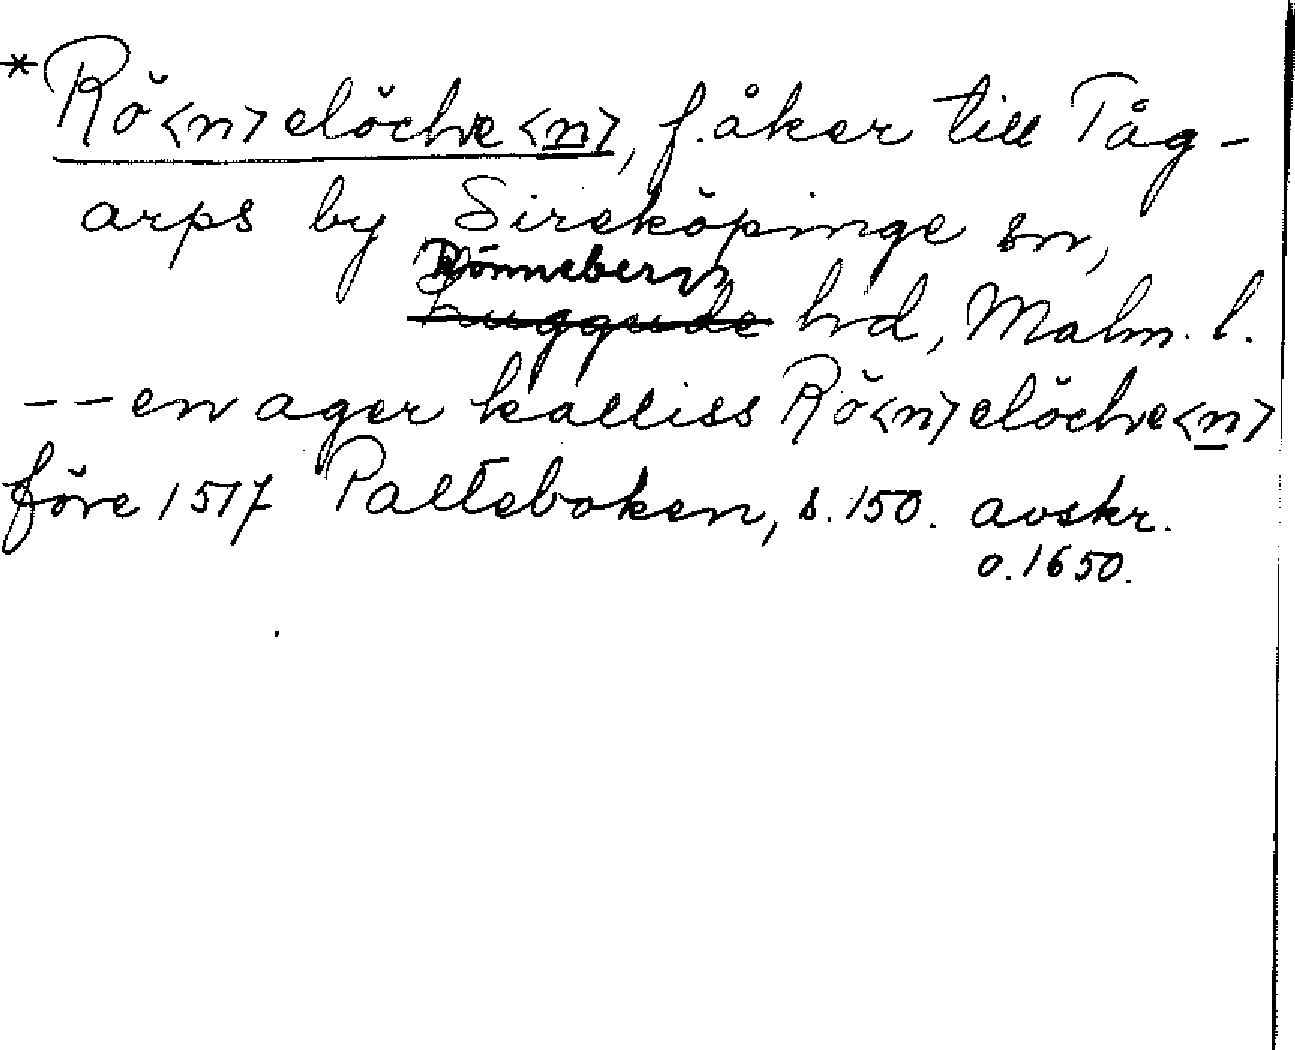 *Rö<n>elöche<n>, f. åker till Tåg-
arps by Sireköpinge sn,
Rönnebergs
Luggude hd, Malm. l.
-- en ager kalliss Rö<n>elöche<n>
före 1517 Palteboken, s. 150. avskr.
o. 1650.